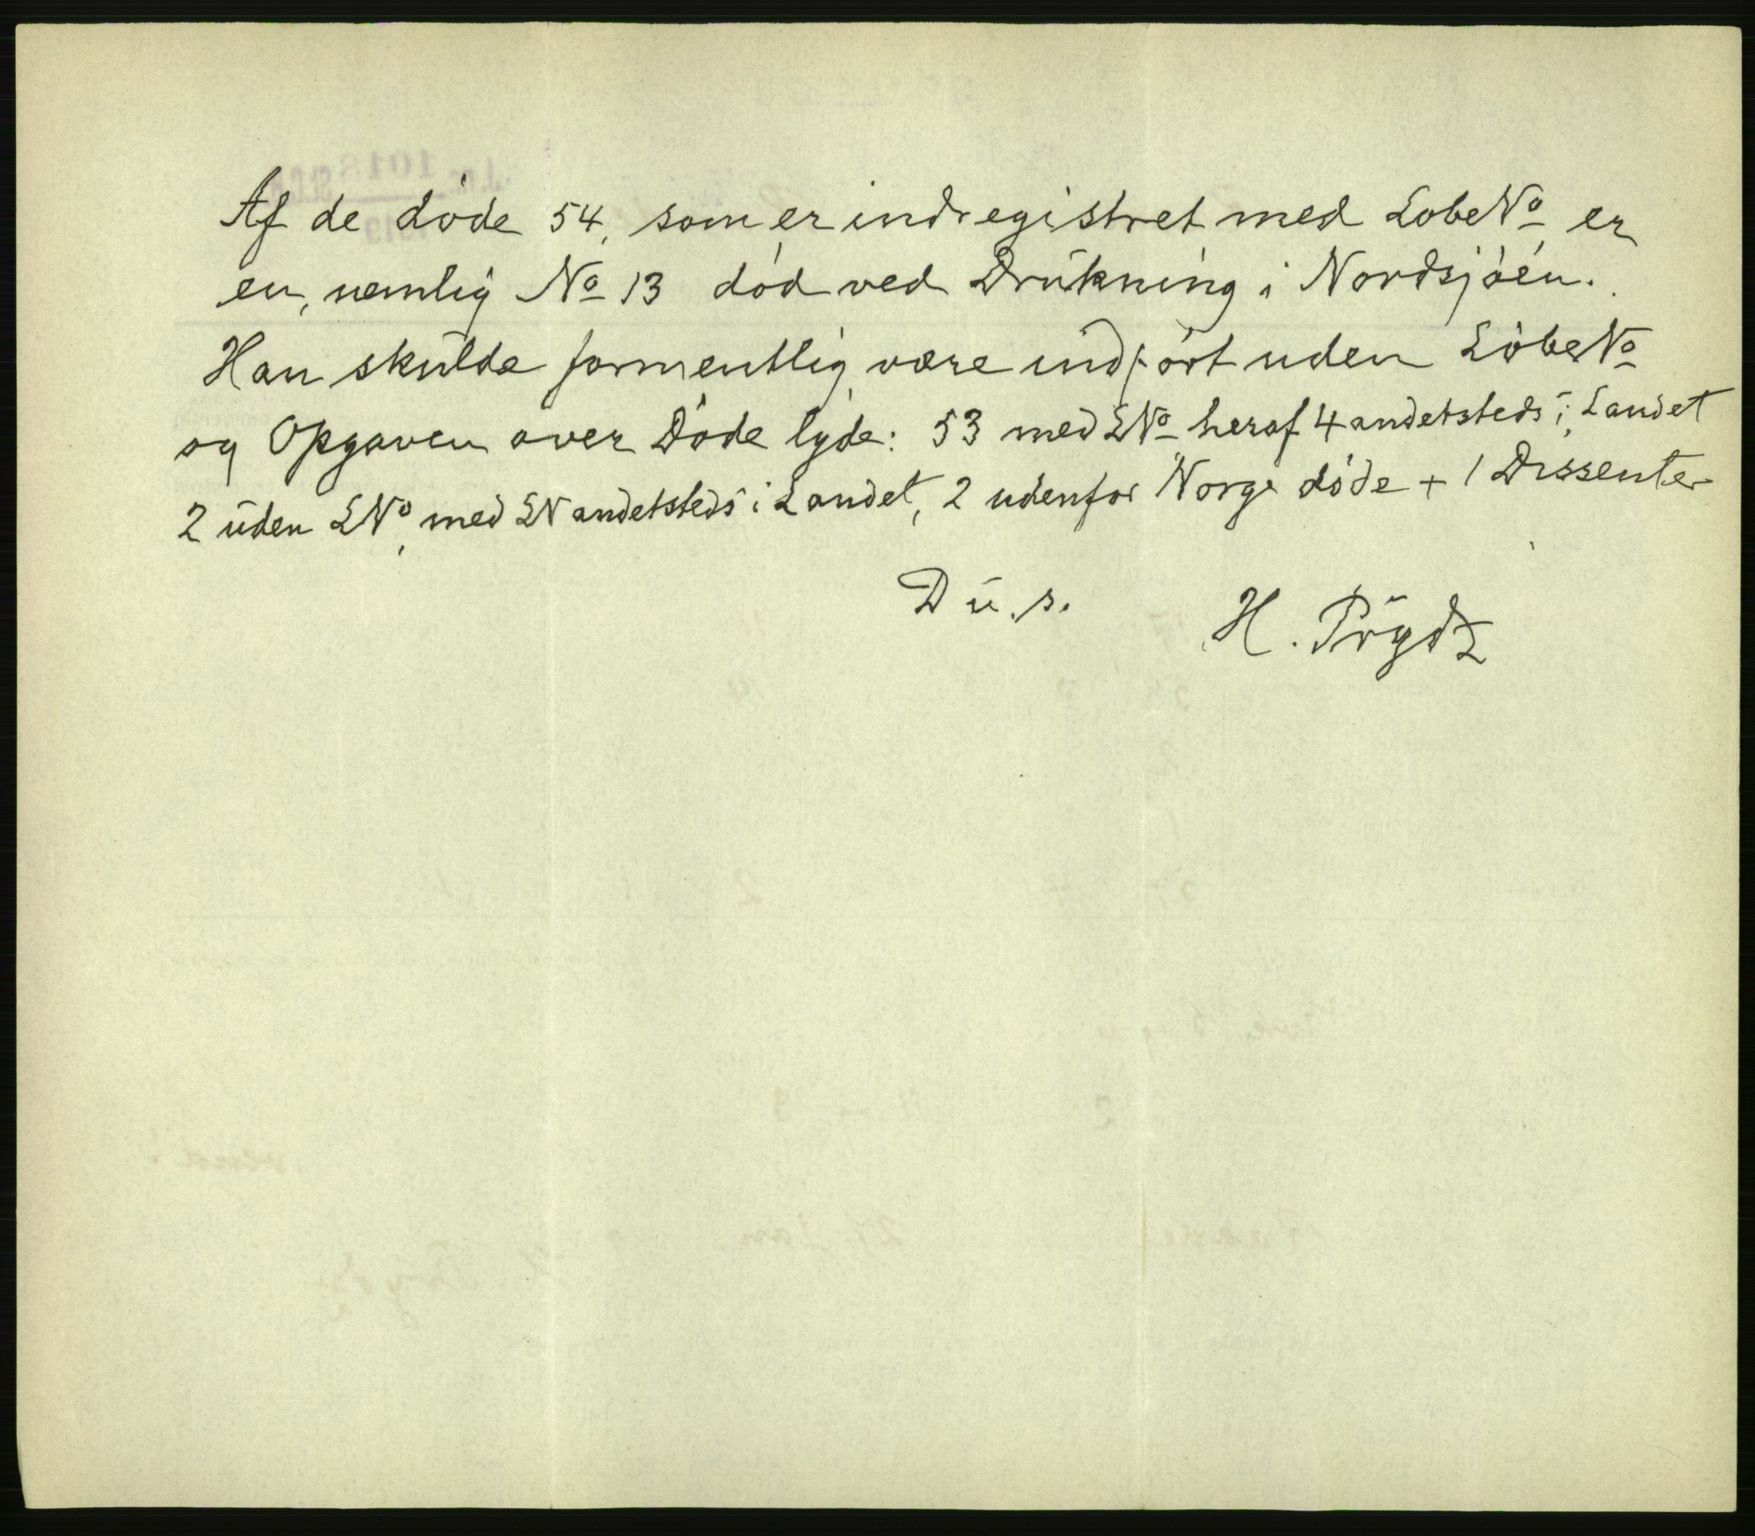 Af de døde 54, som er indregistret med LøbeNo, er
en, nemlig No 13 død ved Drukning i Nordsjøen.
Han skulde formentlig være indført uden LøbeNo
og Opgaven over Døde lyde: 53 med LNo heraf 4 andetsteds i Landet
2 uden LNo, med LN andetsteds i Landet, 2 udenfor Norge døde + 1 Dissenter
D u. s.
H. Prydz